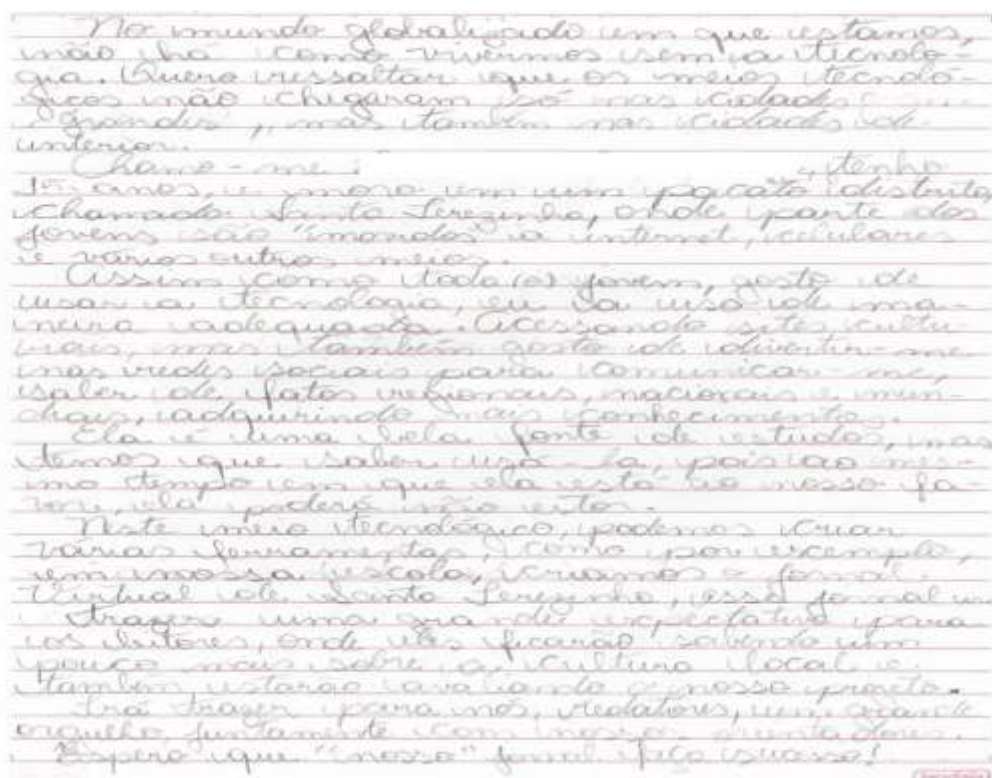 No mundo globalizado em que estamos,
não há como vivermos sem a tecnolo-
gia. Quero ressaltar que os meios tecnoló-
gicos não chegaram só nas cidades
grandes, mas também nas cidades de
interior.
Chamo-me: , tenho
15 anos, e moro em um pacato distrito,
chamado Santa Terezinha, onde parte dos
jovens são a internet, celulares
e vários outros meios.
Assim como todo(a) jovem, gosto de
usar a tecnologia, eu a uso de ma-
neira adequada. Acessando sites cultu-
rais, mas também gosto de divertir-me
nas redes sociais para comunicar-me,
saber de fatos regionais, nacionais e mun-
diais, adquirindo mais conhecimentos.
Ela é uma bela fonte de estudos, mas
temos que saber usá-la, pois ao mes-
mo tempo em que ela está ao nosso fa-
vor, ela poderá não estar.
Neste meio tecnológico, podemos criar
várias ferramentas, como por exemplo,
em nossa escola, criamos o jornal
Virtual de Santa Terezinha, esse jornal
trazer uma grande expectativa para
os leitores, onde eles ficarão sabendo um
pouco mais sobre a cultura local e
também, estarão avaliando o nosso projeto.
Irá trazer para nós, redatores, um grande
orgulho, juntamente com nossos orientadores.
Espero que "nosso" jornal faça sucesso!